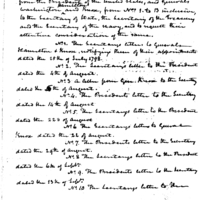 from the President of the United States, and Generals
Hamilton
Washington, and Knox, from Nos 1 to 13 inclusive,
to the Secretary of State, the Secretary of the Treasury
and the Secretary of the Navy, and to request their
attentive considerations of the same.
No 1. The Secretarys letter to Generals
Hamilton & Knox notifying them of their appointments
dated the 25th of July 1798.
No 2. The Secretarys letter to the President
dated the 4th of August.
No 3. a letter from Genl. Knox to the Secretary
dated the 5th of August.
No 4. The Presidents letter to the Secretary
dated the 14th of August
No 5. The Secretarys letter to the President
dated the 22d of August
No 6 The Secretarys letter to General
Knox dated the 22 of August.
No 7. The Presidents letter to the Secretary
dated the 29th of August.
No 8. The Secretarys letter to the President
dated the 6th of Septr.
No 9. The Presidents letter to the Secretary
dated the 13th of Septr.
No 10. The Secretarys letter to